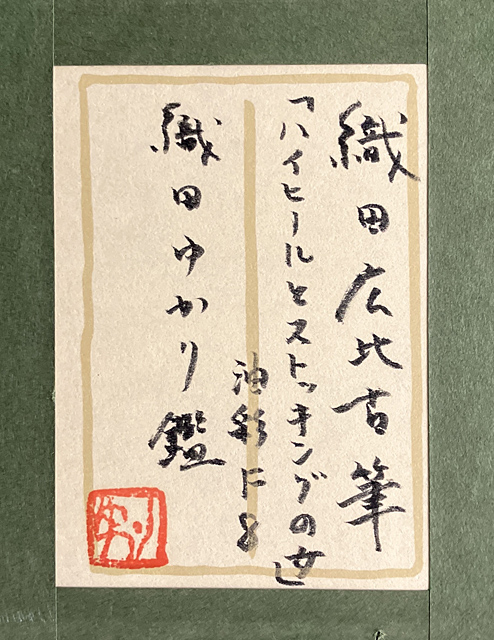 織田広比古筆
「ハイヒールとストッキングの女」
油彩F8
織田ゆかり鑑